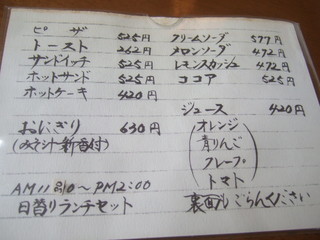 ピザ 525円
トースト 262円
サンドイッチ 525円
ホットサンド 525円
ホットケーキ 420円
おにぎり 630円
(みそ汁・新香付)
AM11:00～PM2:00
日替りランチセット
クリームソーダ 577円
メロンソーダ 472円
レモンスカッシュ 472円
ココア 525円
ジュース 420円
(オレンジ
青りんご
グレープ
トマト)
裏面もごらんください